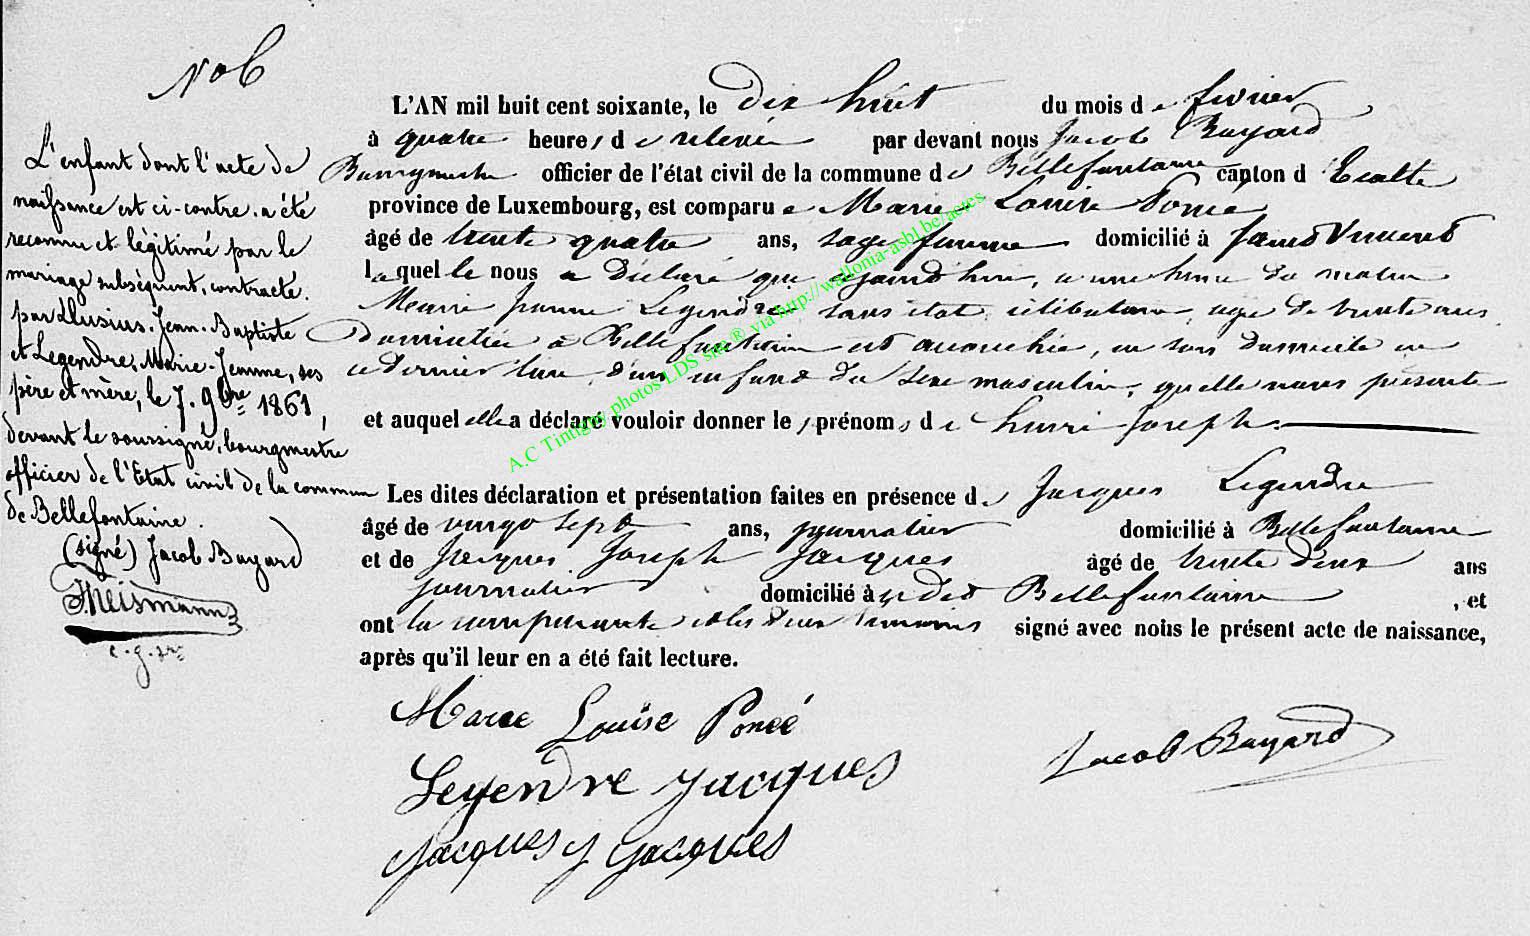 No 6
L'AN mil huit cent soixante, le dix huit du mois de fevrier
à quatre heures de relevée par devant nous Jacob Bayard
Bourgmestre officier de l'état civil de la commune de Bellefontaine canton d'Etalle
province de Luxembourg, est comparue Marie Louise Poncé
âgé de trente quatre ans, sage femme domicilié à Saint Vincent
laquelle nous a déclaré que aujourd'hui, a une heure du matin
Marie Jeanne Legendre, sans état, célibataire, agée de trente ans
Domiciliée à Bellefontaine est accouchée, en son domicile en
ce dernier lieu, d'un enfant du sexe masculin, quelle nous présente
et auquel elle a déclaré vouloir donner les prénoms de henri Joseph.
Les dites déclaration et présentation faites en présence de Jacques Legendre
âgé de vingt sept ans, journalier domicilié à Bellefontaine
et de Jacques Joseph Jacques âgé de trente deux ans
journalier domicilié à dit Bellefontaine, et
ont la comparante et les deux témoins signé avec nous le présent acte de naissance,
après qu'il leur en a été fait lecture.
Marie Louise Poncé
Legendre Jacques
Jacques J Jacques
Jacob Bayard
L'enfant dont l'acte de
naissance est ci-contre. a été
reconnu et légitimé par le
mariage subséquent, contracté.
par Llusius. Jean-Baptiste
et Legendre, Marie-Jeanne, ses
père et mère, le 7. 9bre 1861,
devant le soussigné, bourgmestre
officier de l'Etat civil de la commune
de Bellefontaine.
(signé) Jacob Bayard
Theismann
c. g. pr
A.C Tintigny photos LDS site ® via http://wallonia-asbl.be/actes